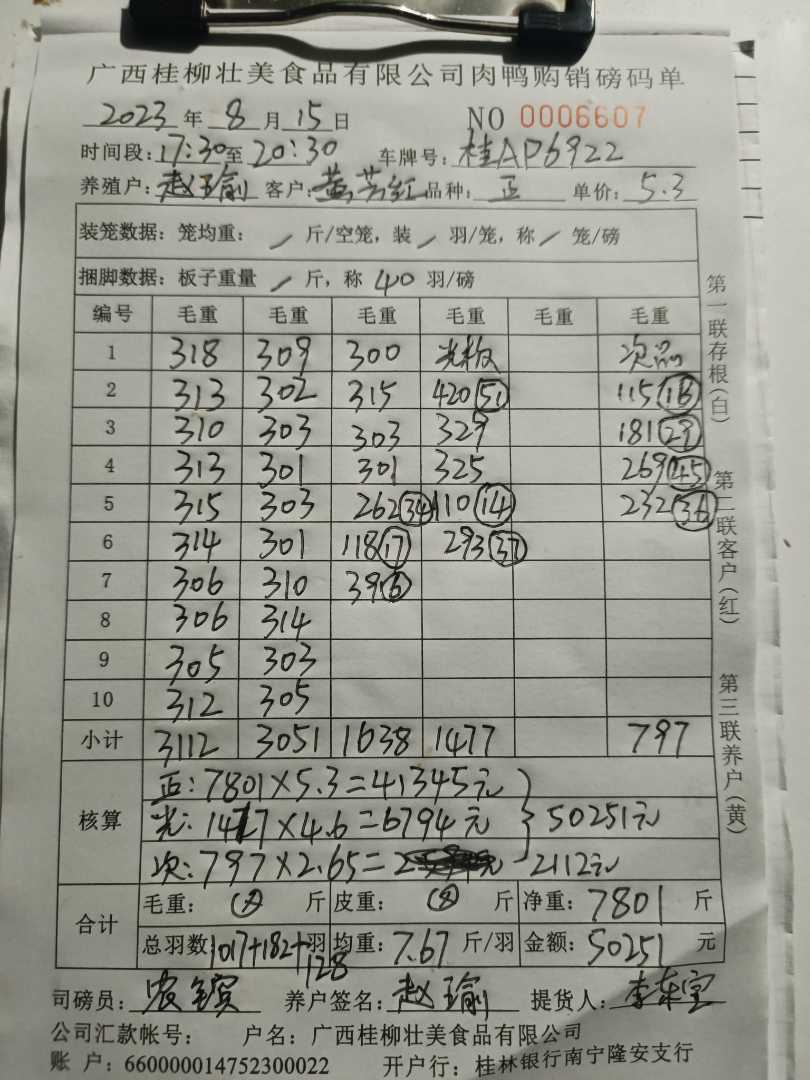 广西桂柳壮美食品有限公司肉鸭购销磅码单
2023 年 8 月 15 日 NO 0006607
时间段: 17:30 至 20:30 车牌号: 桂AP6922
养殖户: 赵瑜 客户: 黄芳红 品种: 正 单价: 5.3
装笼数据: 笼均重: / 斤/空笼, 装 / 羽/笼, 称 / 笼/磅
捆脚数据: 板子重量 / 斤, 称 40 羽/磅
编号 毛重 毛重 毛重 毛重 毛重 毛重
1 318 309 300 光板 次品
2 313 302 315 420 51 115 18
3 310 303 303 329 181 29
4 313 301 301 325 269 45
5 315 303 262 34 110 14 232 36
6 314 301 118 17 293 37
7 306 310 39 6
8 306 314
9 305 303
10 312 305
小计 3112 3051 1638 1477 797
核算
正: 7801×5.3=41345元
光: 1477×4.6=6794元 } 50251元
次: 797×2.65= 2112元
合计
毛重: 斤 皮重: 斤 净重: 7801 斤
总羽数 1017+182+128 羽 均重: 7.67 斤/羽 金额: 50251 元
司磅员: 养户签名: 赵瑜 提货人: 李东宝
公司汇款帐号: 户名: 广西桂柳壮美食品有限公司
账 户: 660000014752300022 开户行: 桂林银行南宁隆安支行
第一联存根(白)
第二联客户(红)
第三联养户(黄)